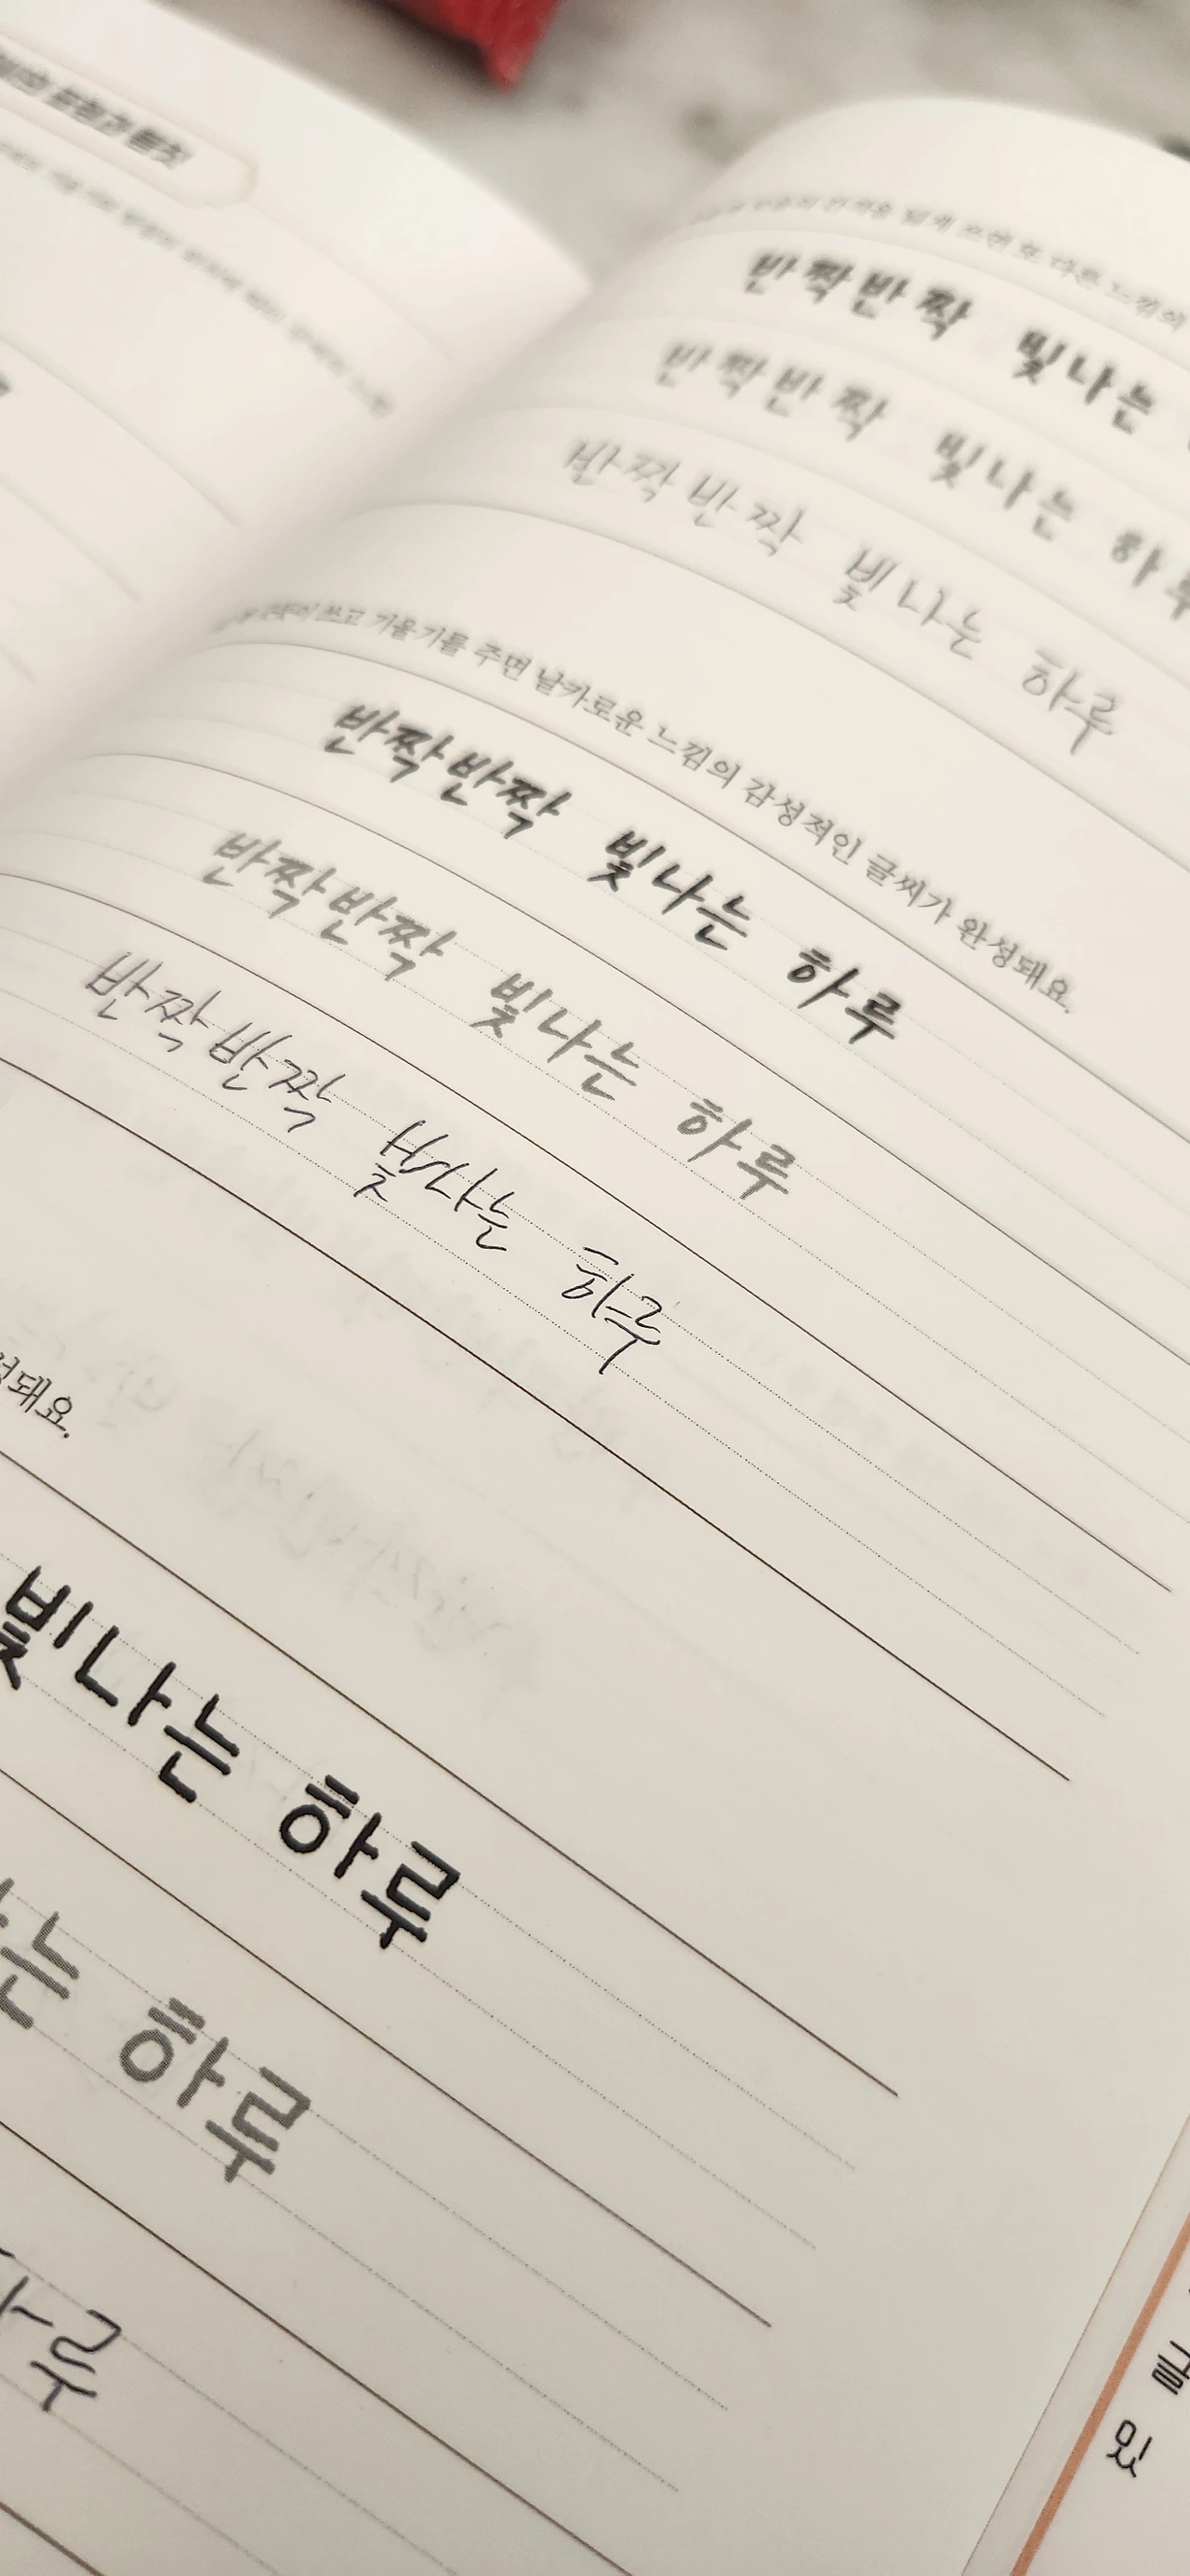 쓰면 또 다른 느낌의
반짝반짝 빛나는
반짝반짝 빛나는 하루
반짝반짝 빛나는 하루
쓰고 기울기를 주면 날카로운 느낌의 감성적인 글씨가 완성돼요.
반짝반짝 빛나는 하루
반짝반짝 빛나는 하루
반짝반짝 빛나는 하루
성돼요.
빛나는 하루
는 하루
하루
글
있